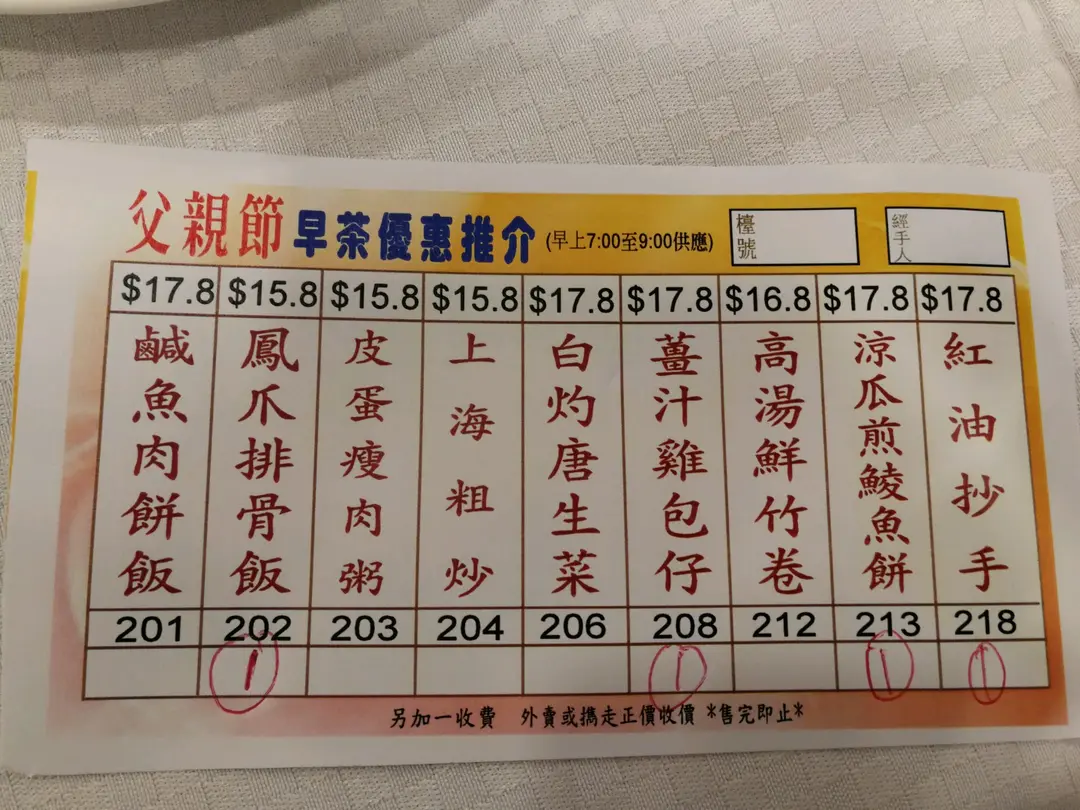 父親節 早茶優惠推介 (早上7:00至9:00供應) 檯號 經手人
$17.8 $15.8 $15.8 $15.8 $17.8 $17.8 $16.8 $17.8 $17.8
鹹魚肉餅飯
鳳爪排骨飯
皮蛋瘦肉粥
上海粗炒
白灼唐生菜
薑汁雞包仔
高湯鮮竹卷
涼瓜煎鯪魚餅
紅油抄手
201 202 203 204 206 208 212 213 218
1 1 1 1
另加一收費 外賣或攜走正價收價 *售完即止*